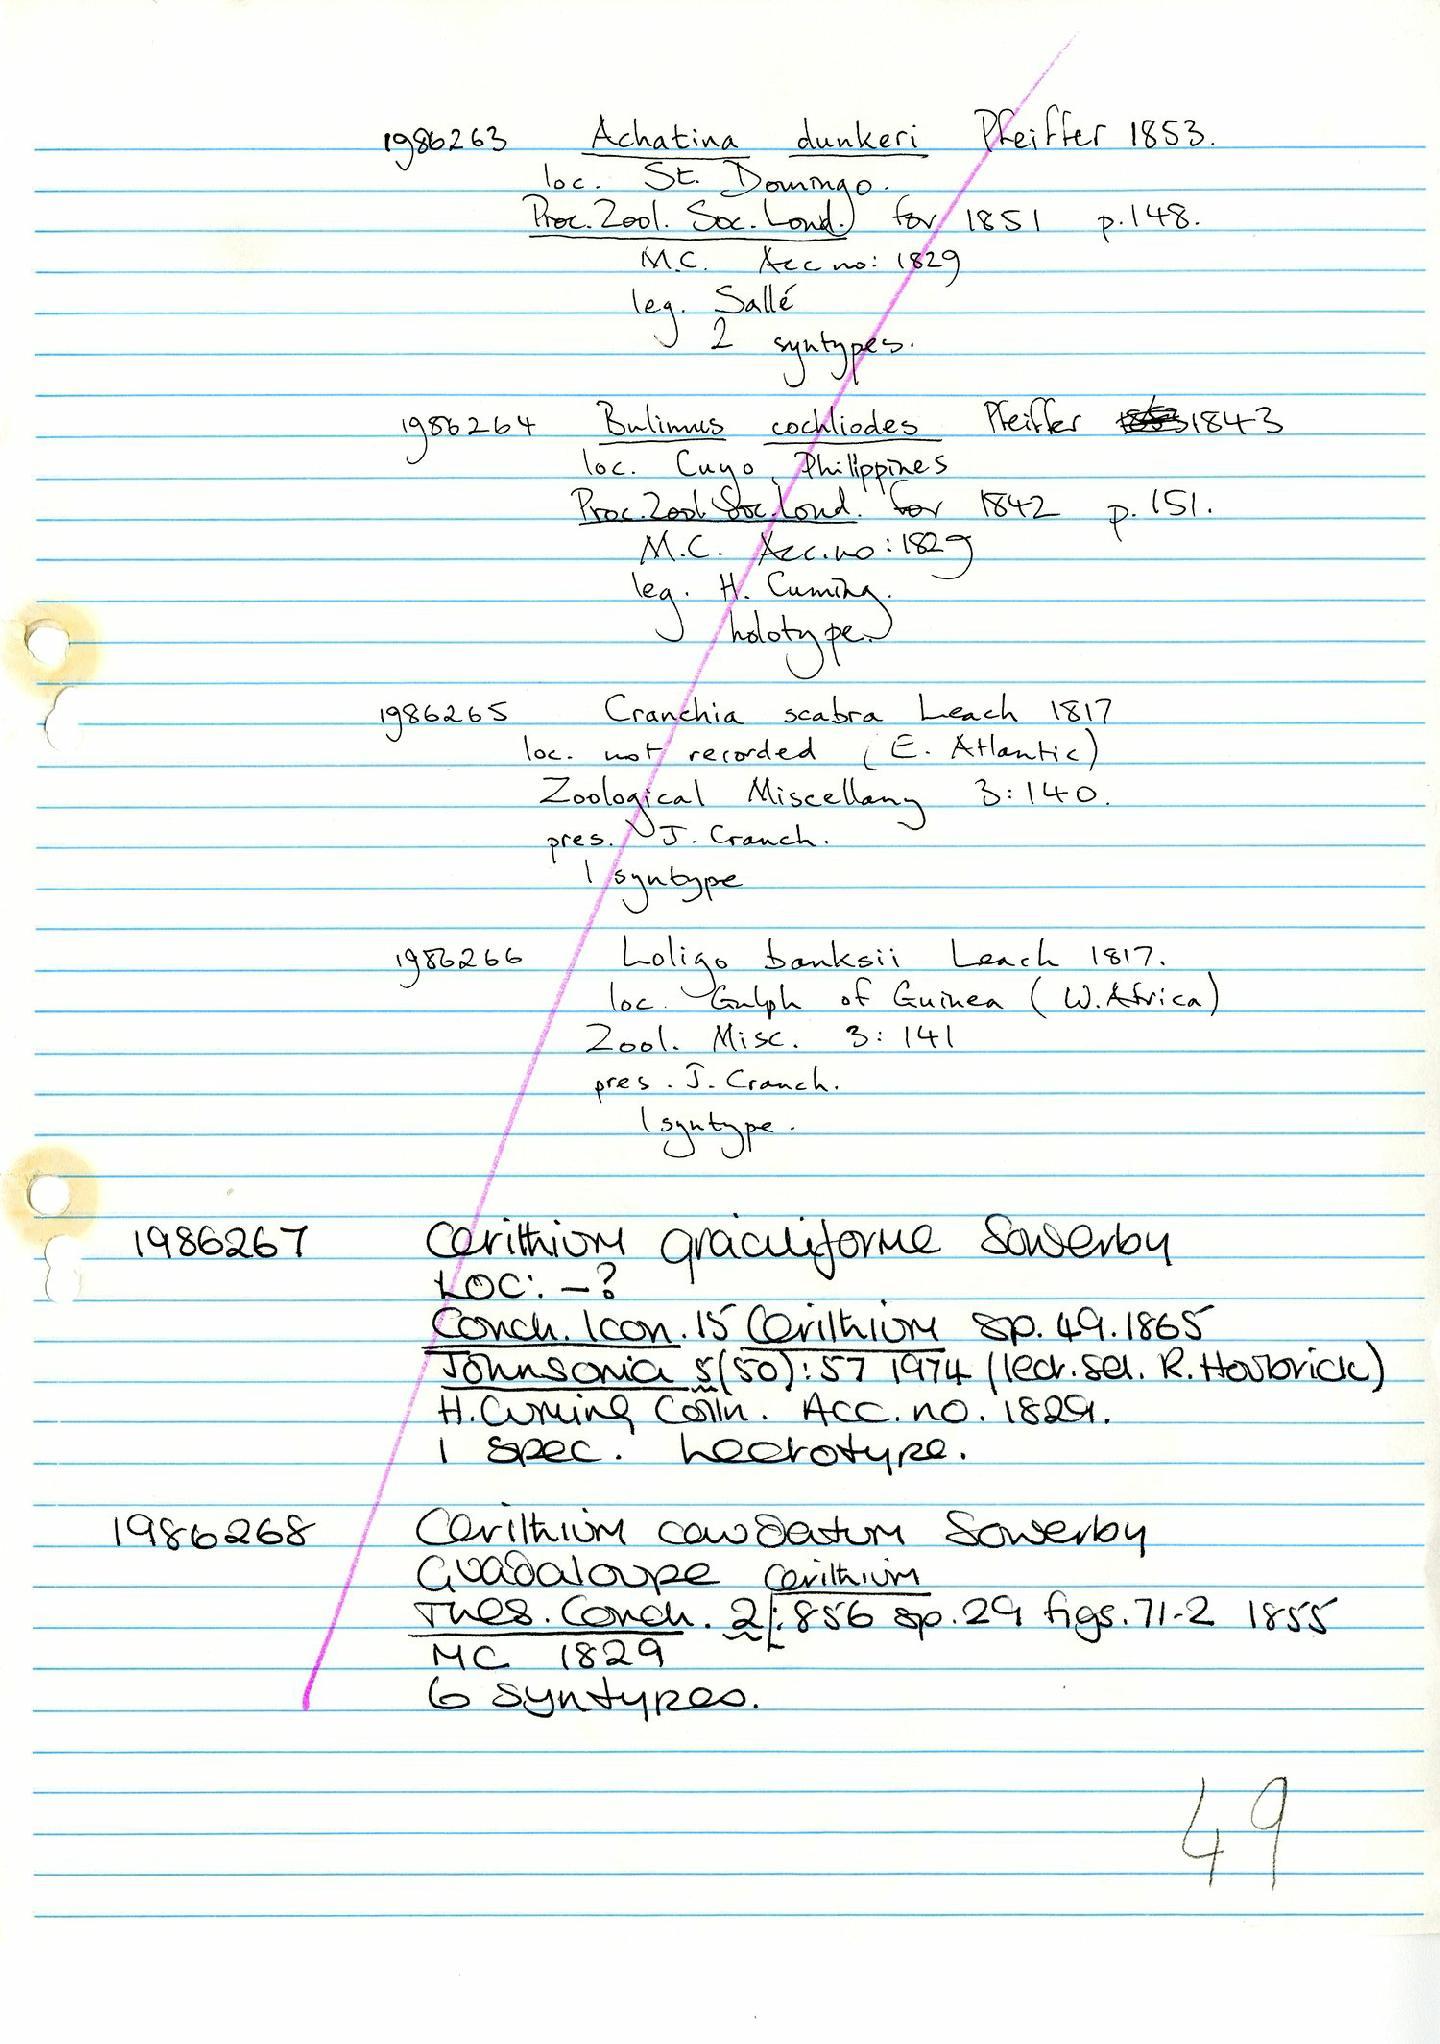 1986263 Achatina dunkeri Pfeiffer 1853.
loc. St. Domingo.
Proc. Zool. Soc. Lond. for 1851 p.148.
M.C. Acc no: 1829
leg. Sallé
2 syntypes.
1986264 Bulimus cochliodes Pfeiffer 1843
loc. Cuyo, Philippines
Proc. Zool. Soc. Lond. for 1842 p. 151.
M.C. Acc. no: 1829
leg. H. Cuming.
holotype.
1986265 Cranchia scabra Leach 1817
loc. not recorded (E. Atlantic)
Zoological Miscellany 3: 140.
pres. J. Cranch.
1 syntype
1986266 Loligo banksii Leach 1817.
loc. Gulph of Guinea (W. Africa)
Zool. Misc. 3: 141
pres. J. Cranch.
1 syntype.
1986267 Cerithium graciliforme Sowerby
LOC: –?
Conch. Icon. 15 Cerithium sp. 49. 1865
Johnsonia 5(50): 57 1974 (lect. sel. R. Houbrick)
H. Cuming Colln. Acc. no. 1829.
1 spec. lectotype.
1986268 Cerithium caudatum Sowerby
Guadaloupe Cerithium
Thes. Conch. 2[: 856 sp. 29 figs. 71-2 1855
MC 1829
6 syntypes.
49